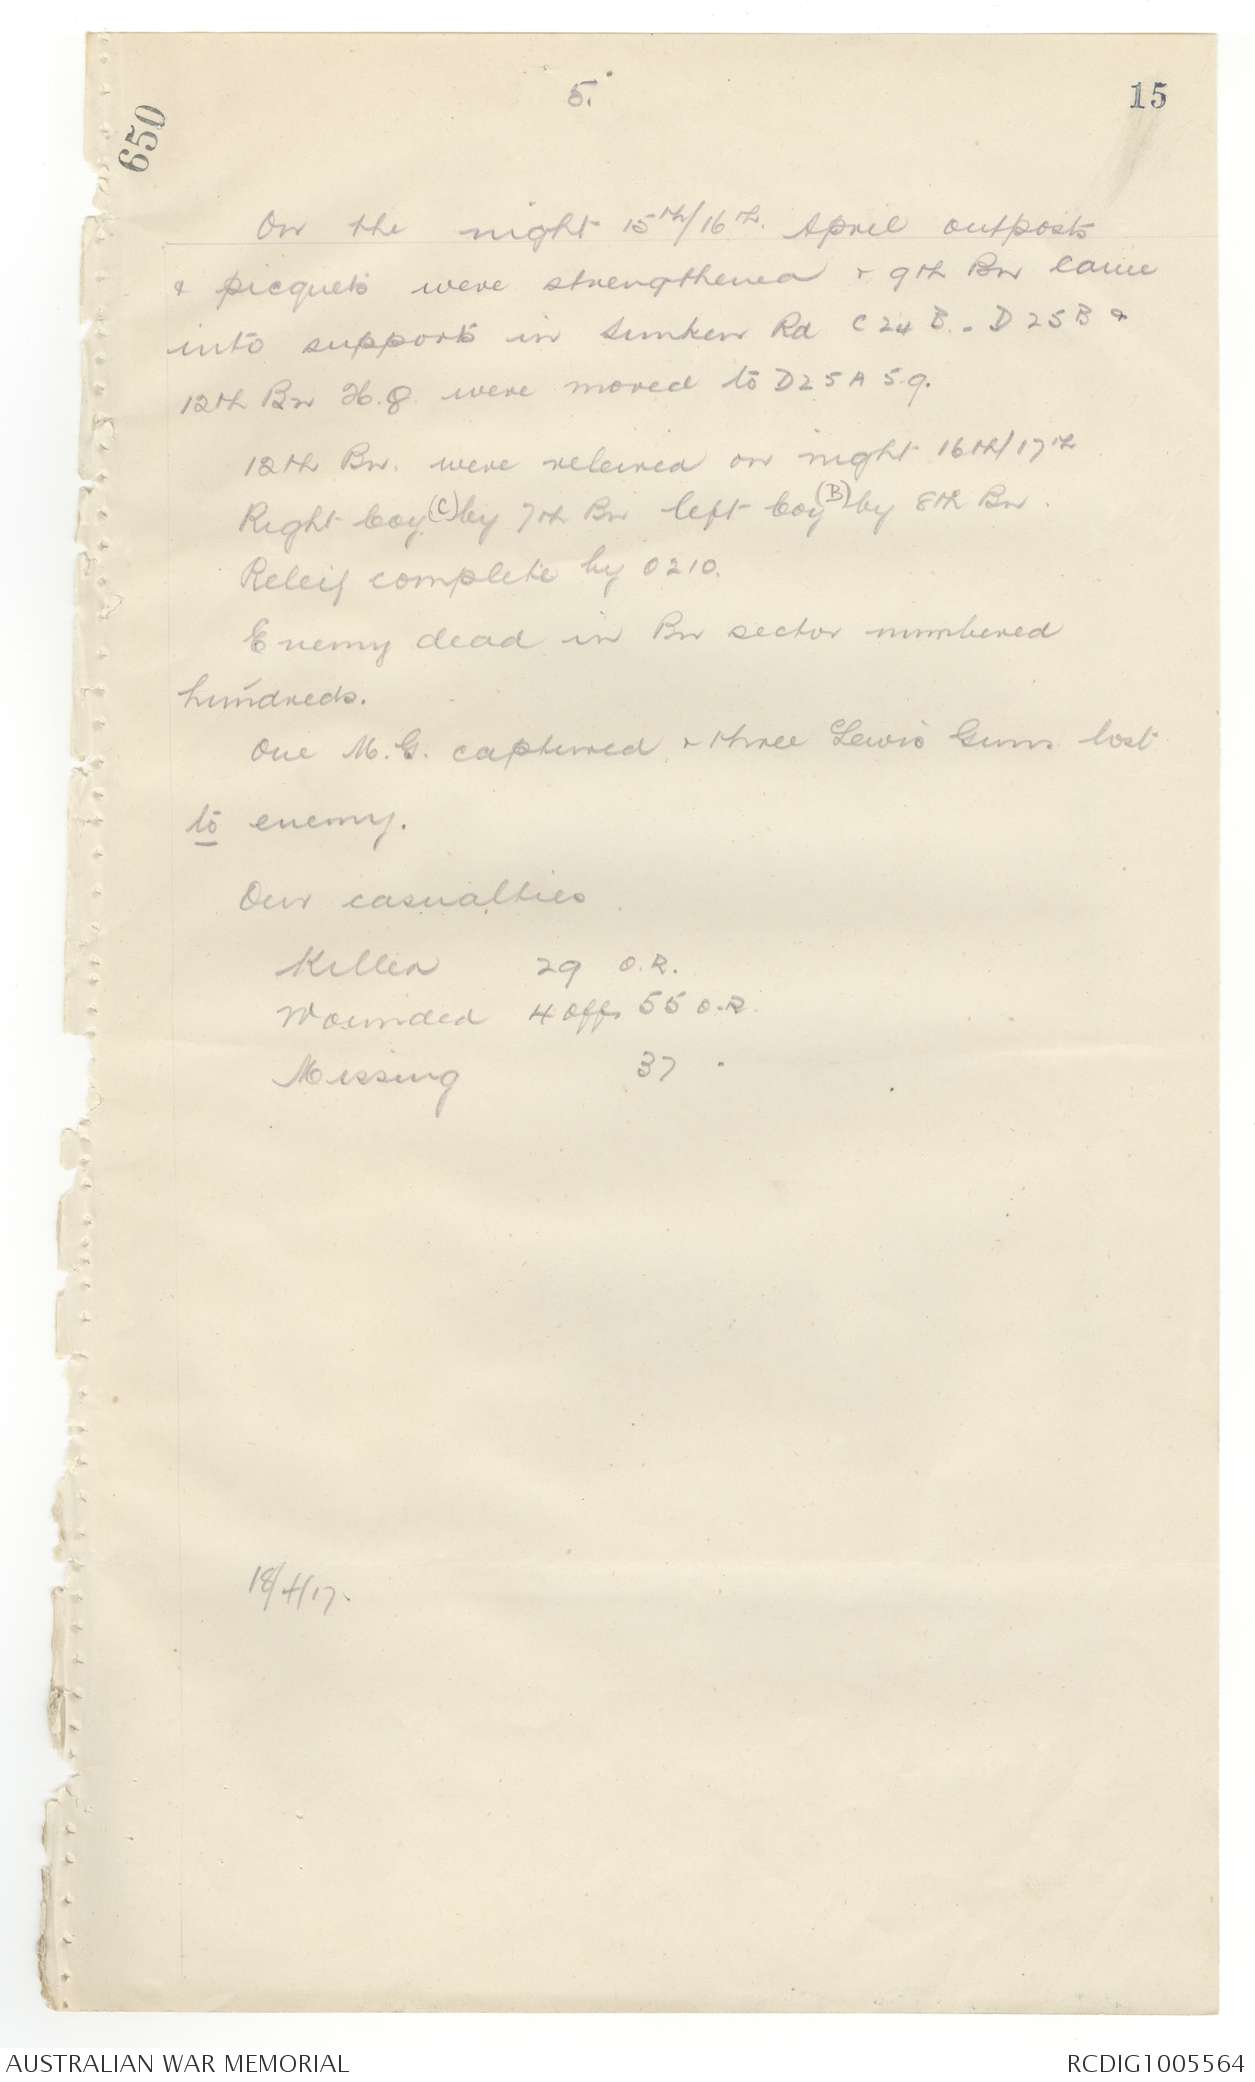 650
5.
15
On the night 15th/16th. April outposts
& picquets were strengthened & 9th Bn came
into supports in Sunken Rd C24B. - D25B &
12th Bn H.Q. were moved to D25A 5.9.
12th Bn. were releived on night 16th/17th
Right Coy (C) by 7th Bn left Coy (B) by 8th Bn.
Releif complete by 0210.
Enemy dead in Bn sector numbered
hundreds.
One M.G. captured & three Lewis Guns lost
to enemy.
Our casualties
Killed 29 O.R.
Wounded 4 Offs 55 O.R.
Missing 37 "
18/4/17.
AUSTRALIAN WAR MEMORIAL
RCDIG1005564